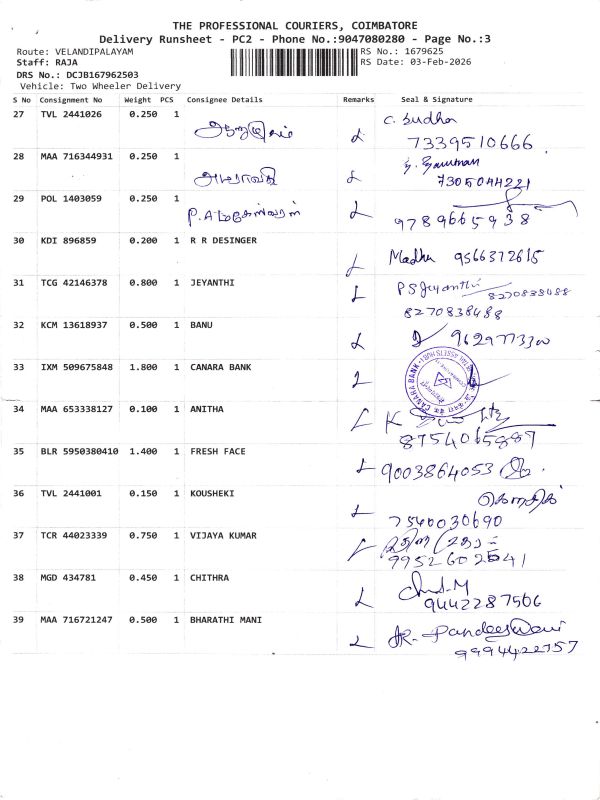 THE PROFESSIONAL COURIERS, COIMBATORE
Delivery Runsheet - PC2 - Phone No.:9047080280 - Page No.:3
Route: VELANDIPALAYAM
RS No.: 1679625
Staff: RAJA
RS Date: 03-Feb-2026
DRS No.: DCJB167962503
Vehicle: Two Wheeler Delivery
S No Consignment No Weight PCS Consignee Details Remarks Seal & Signature
27 TVL 2441026 0.250 1 C. Sudha
7339510666
28 MAA 716344931 0.250 1
7305044221
29 POL 1403059 0.250 1
P.A மகேஸ்வரன்
9789665938
30 KDI 896859 0.200 1 R R DESINGER
Madhu 9566372615
31 TCG 42146378 0.800 1 JEYANTHI
P S Jeyanthi 8270838488
8270838488
32 KCM 13618937 0.500 1 BANU
33 IXM 509675848 1.800 1 CANARA BANK
CANARA BANK
34 MAA 653338127 0.100 1 ANITHA
35 BLR 5950380410 1.400 1 FRESH FACE
9003864053
36 TVL 2441001 0.150 1 KOUSHEKI
7540030690
37 TCR 44023339 0.750 1 VIJAYA KUMAR
9952602541
38 MGD 434781 0.450 1 CHITHRA
9442287506
39 MAA 716721247 0.500 1 BHARATHI MANI
9994422757